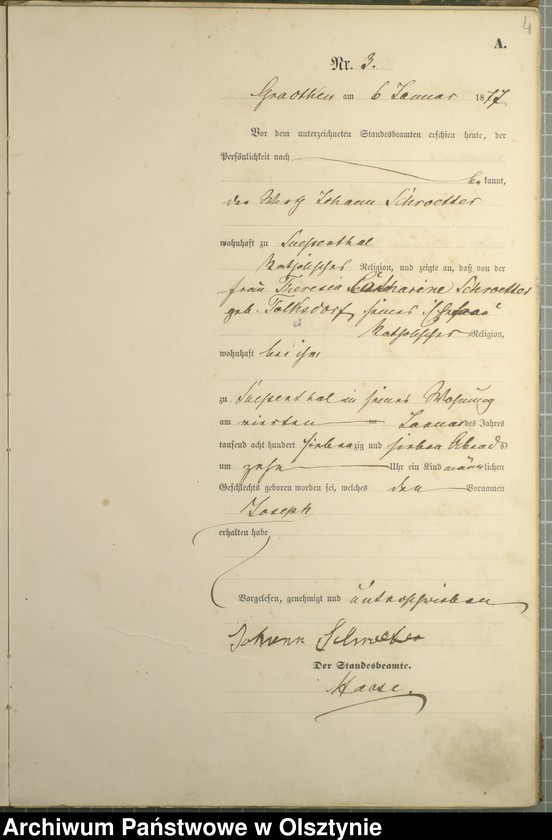 4
A.
Nr. 3.
am 6 Januar 1877
Vor dem unterzeichneten Standesbeamten erschien heute, der
Persönlichkeit nach
bekannt,
der Wirth Johann Schroetter
wohnhaft zu
katholischer Religion, und zeigte an, daß von der
Frau Theresia Catharine Schroetter
geb. Tolksdorf, seiner Ehefrau
katholischer Religion,
wohnhaft bei ihm
zu in seiner Wohnung
am vierten Januar des Jahres
tausend acht hundert siebenzig und sieben Abends
um zehn Uhr ein Kind männlichen
Geschlechts geboren worden sei, welches den Vornamen
Joseph
erhalten habe
Vorgelesen, genehmigt und unterschrieben
Johann Schroetter
Der Standesbeamte.
Haase.
Archiwum Państwowe w Olsztynie